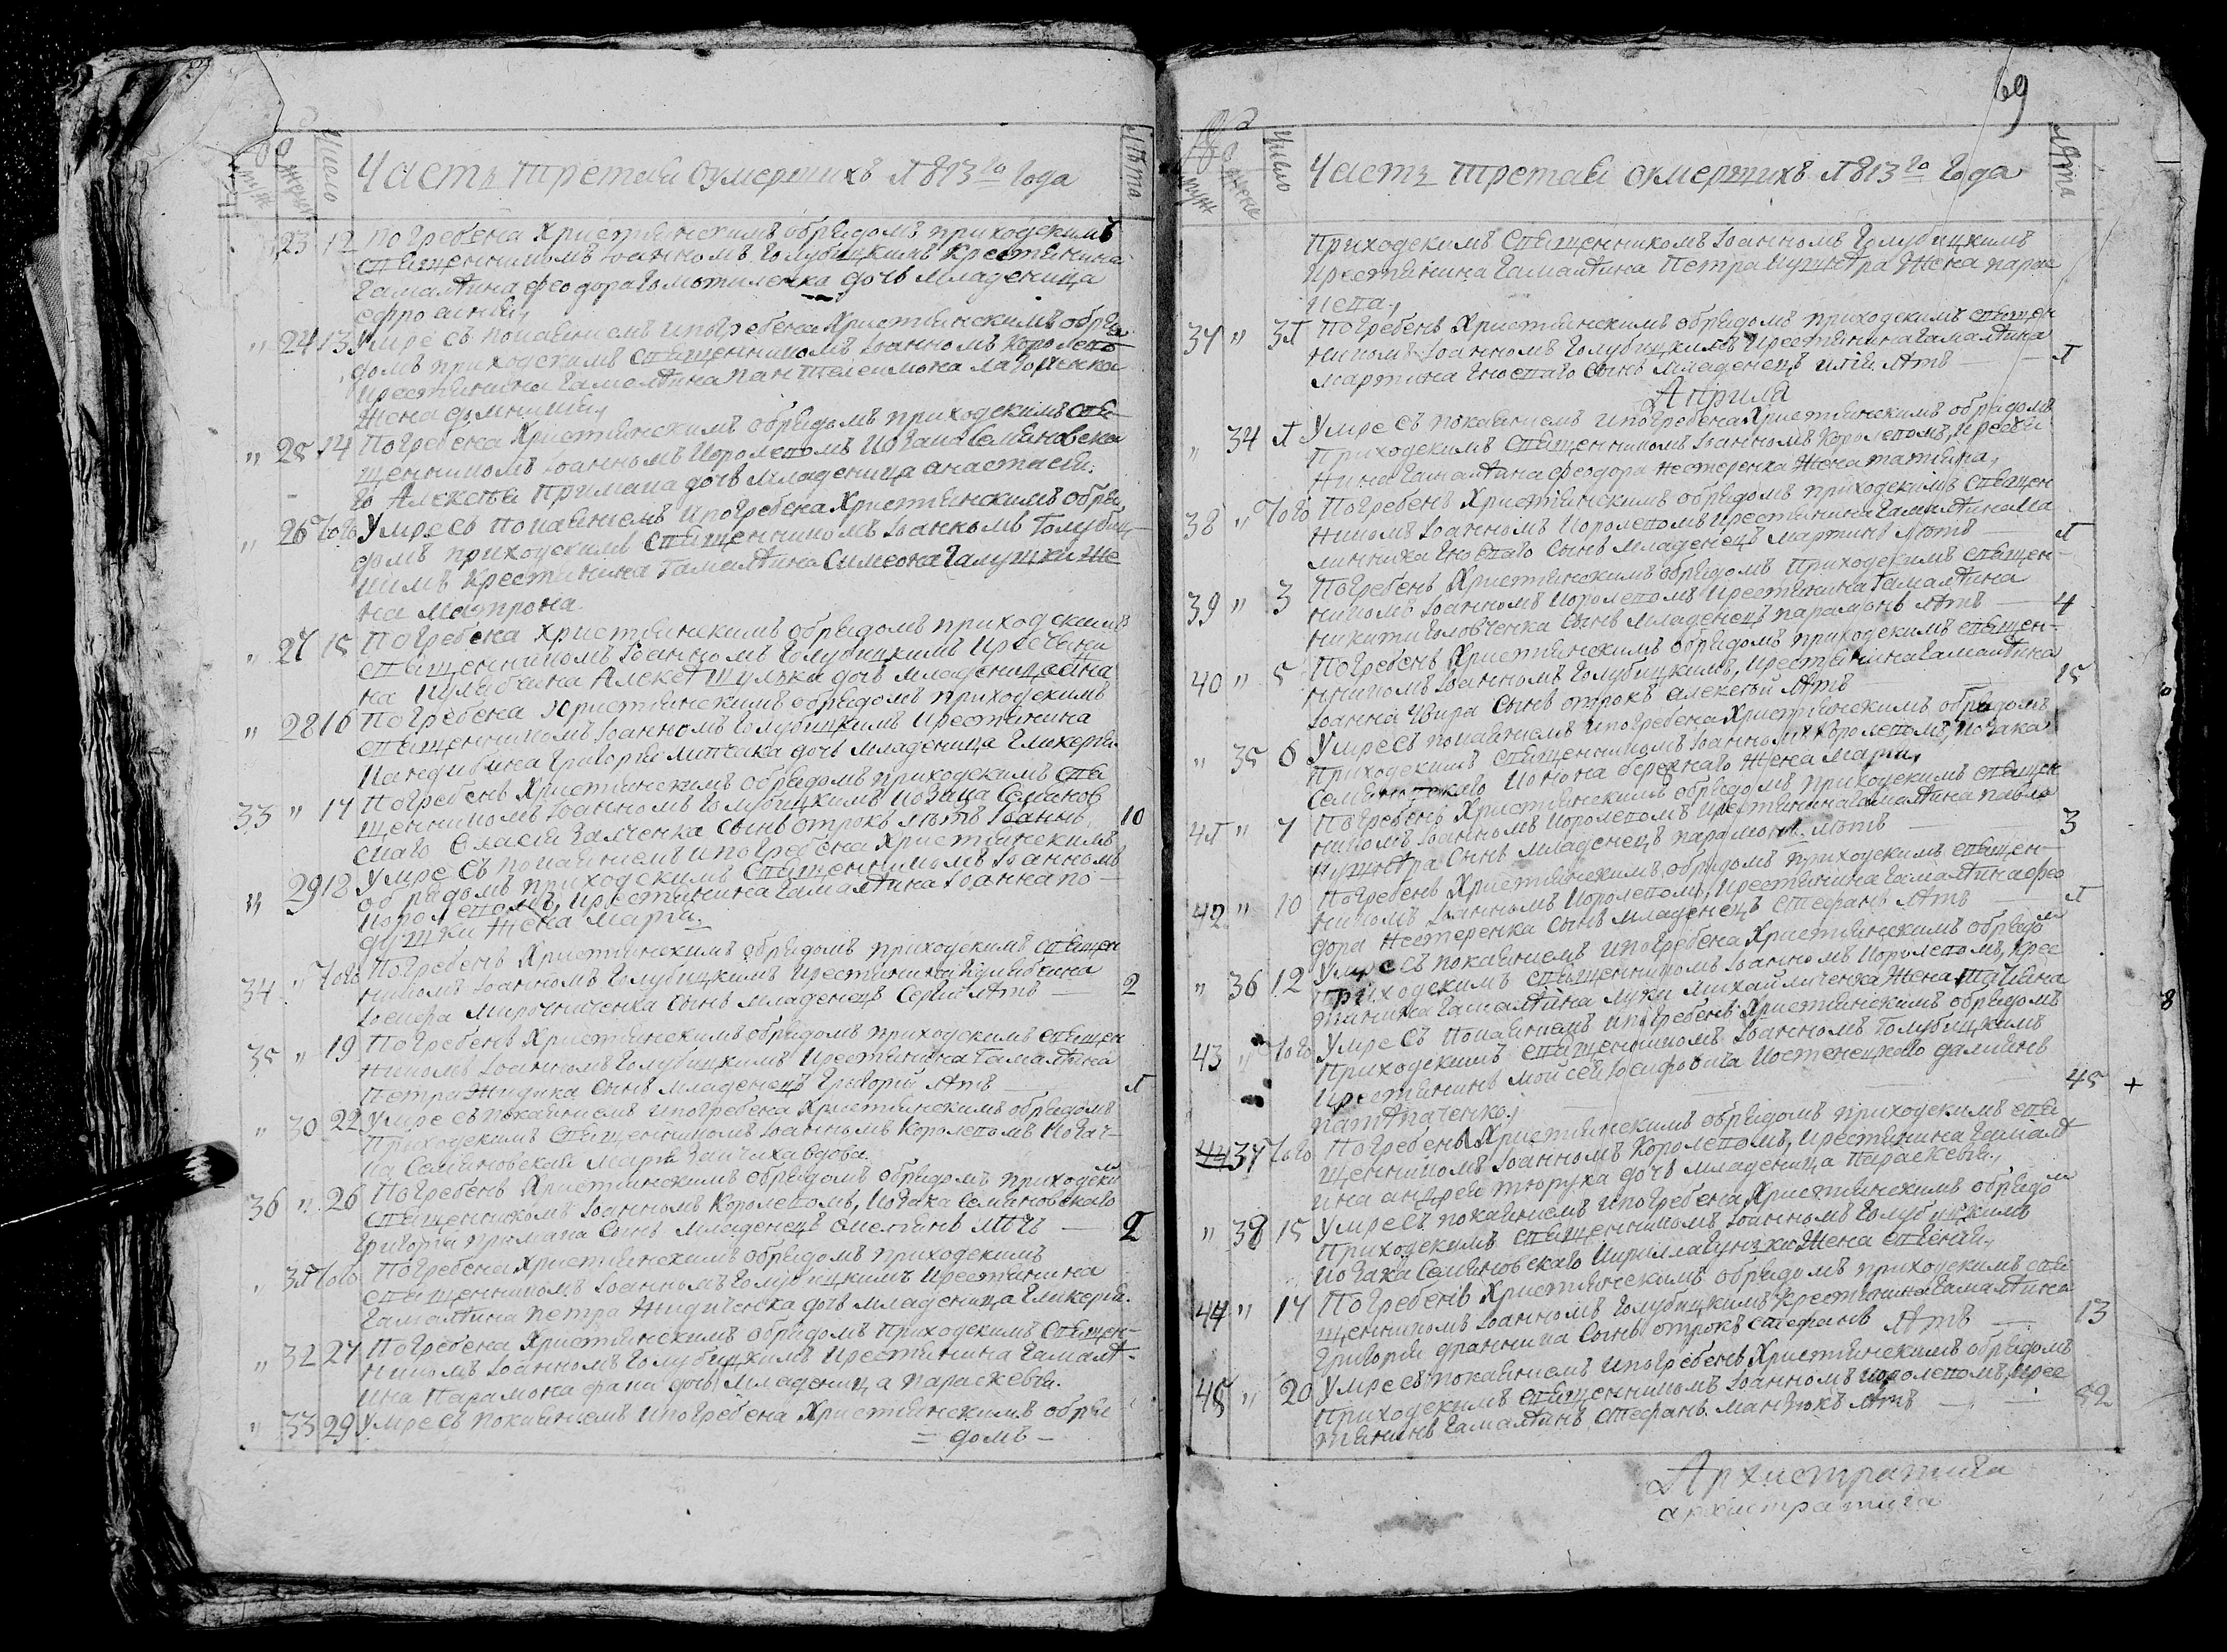 Часть третая оумершихъ 1813го года
муж
женс
Число
Лѣта
23 12 Погребена Християнскимъ обрядомъ приходскимъ
священникомъ Іоанномъ Голубицкимъ Крестянина
Гамалѣина феодора дочь младеница
ефросинія,
" 24 13 Умре съ покаяниемъ и погребена Християнскимъ обря
домъ приходскимъ священникомъ Іоанномъ Королевомъ
крестянина Гамалѣина пантелеимона
жена
" 25 14 Погребена Християнскимъ обрядомъ приходскимъ свя
щенникомъ Іоанномъ Королевомъ козака Семяновска
го Алексѣя Примака дочь младеница анастасия.
" 26 того Умре съ покаяниемъ и погребена Християнскимъ обря
домъ приходскимъ священникомъ Іоанномъ Голубиц
кимъ Крестянина Гамалѣина Симеона Галушки же
на матрона.
" 27 15 Погребена Християнскимъ обрядомъ приходскимъ
священникомъ Іоанномъ Голубицкимъ
на Алексѣя Шулжа дочь младеница анна
" 28 16 Погребена Християнскимъ обрядомъ приходскимъ
священникомъ Іоанномъ Голубицкимъ крестянина
Григория дочь младеница гликерия
33 " 17 Погребенъ Християнскимъ обрядомъ приходскимъ свя
щенникомъ Іоанномъ Голубицкимъ козака Семянов
скаго Власия Галченка сынъ отрокъ лѣтъ Іоаннъ, 10
" 29 18 Умре съ покаяниемъ и погребена Християнскимъ
обрядомъ приходскимъ священникомъ Іоанномъ
Королевомъ, крестянина Гамалѣина Іоанна по
душки жена Марфа.
34 " того Погребенъ Християнскимъ обрядомъ приходскимъ священ
никомъ Іоанномъ Голубицкимъ крестянина Кулябкина
Іосифа Мирочниченка сынъ младенецъ Сергий лѣтъ — 2
35 " 19 Погребенъ Християнскимъ обрядомъ приходскимъ священ
никомъ Іоанномъ Голубицкимъ крестянина Гамалѣина
Петра Жидика сынъ младенецъ Григорий лѣтъ — 1
" 30 22 Умре съ покаяниемъ и погребена Християнскимъ обрядомъ
приходскимъ священникомъ Іоанномъ Королевомъ козач
ка Семяновская Марфа Заичиха вдова.
36 " 26 Погребенъ Християнскимъ обрядомъ обрядомъ приходским
священникомъ Іоанномъ Королевомъ, козака Семяновскаго
Григория примака сынъ младенецъ лѣтъ — 2
" 31 того Погребена Християнскимъ обрядомъ приходскимъ
священникомъ Іоанномъ Голубицкимъ крестянина
Гамалѣина петра Жидиченка дочь младеница гликерия.
" 32 27 Погребена Християнскимъ обрядомъ приходскимъ священ
никомъ Іоанномъ Голубицкимъ крестянина Гамалѣ
ина Парамона дочь младеница параскевия.
" 33 29 Умре съ покаяниемъ и погребена Християнскимъ обря
= домъ –
69
муж
женс
Число
Лѣта
Часть третая оумершихъ 1813го года
приходскимъ священникомъ Іоанномъ Голубицкимъ
крестянина Гамалѣина Петра Кушнѣра жена парас
кева,
37 " 31 Погребенъ Християнскимъ обрядомъ приходскимъ священ
никомъ Іоанномъ Голубицкимъ крестянина Гамалѣина
мартина Гноеваго сынъ младенецъ илія лѣтъ — 1
Априля
" 34 1 Умре съ покаяниемъ и погребена Християнскимъ обрядомъ
приходскимъ священникомъ Іоанномъ Королевомъ, крестя
нина Гамалѣина феодора нестеренка жена татияна,
38 " того Погребенъ Християнскимъ обрядомъ приходскимъ священ
никомъ Іоанномъ Королевомъ крестянина Гамалѣина ка
линника Гноеваго сынъ младенецъ мартинъ лѣтъ — 1
39 " 3 Погребенъ Християнскимъ обрядомъ приходскимъ священ
никомъ Іоанномъ Королевомъ крестянина Гамалѣина
никити Головченка сынъ младенецъ парамонъ лѣтъ — 4
40 " 5 Погребенъ Християнскимъ обрядомъ приходскимъ священ
никомъ Іоанномъ Голубицкимъ, крестянина Гамалѣина
Іоанна Чвира сынъ отрокъ алексѣй лѣтъ — 15
" 35 6 Умре съ покаяниемъ и погребена Християнскимъ обрядомъ
приходскимъ священникомъ Іоанномъ Королевомъ, козака
Семяновскаго бережнаго жена Мария,
41 " 7 Погребенъ Християнскимъ обрядомъ приходскимъ священ
никомъ Іоанномъ Королевомъ крестянина Гамалѣина павла
кушнѣра сынъ младенецъ парамонъ лѣтъ — 3
42 " 10 Погребенъ Християнскимъ обрядомъ приходскимъ священ
никомъ Іоанномъ Королевомъ, крестянина Гамалѣина фео
дора нестеренка сынъ младенецъ стефанъ лѣтъ — 1
" 36 12 Умре съ покаяниемъ и погребена Християнскимъ обрядом
приходскимъ священникомъ Іоанномъ Королевомъ, крес
тянина Гамалѣина луки михайличенка жена татияна
43 " того Умре съ покаяниемъ и погребенъ Християнскимъ обрядомъ
приходскимъ священникомъ Іоанномъ Голубицкимъ
крестянинъ Мойсея Іосифовича Костенецкого далиянъ
патлаченко, 45 +
44 37 того Погребена Християнскимъ обрядомъ приходскимъ свя
щенникомъ Іоанномъ Королевомъ, крестянина Гамалѣ
ина андрея дочь младеница Параскевия,
" 38 15 Умре съ покаяниемъ и погребена Християнскимъ обрядом
приходскимъ священникомъ Іоанномъ Голубицкимъ
козака Семяновскаго Кирилла жена евгения,
44 " 17 Погребенъ Християнскимъ обрядомъ приходскимъ свя
щенникомъ Іоанномъ Голубицкимъ Крестянина Гамалѣина
Григория сынъ отрокъ стефанъ лѣтъ — 13
45 " 20 Умре съ покаяниемъ и погребенъ Християнскимъ обрядомъ
приходскимъ священникомъ Іоанномъ Королевомъ, крес
тянинъ Гамалѣинъ стефанъ лѣтъ — 82
Архистратига
архистратига
8